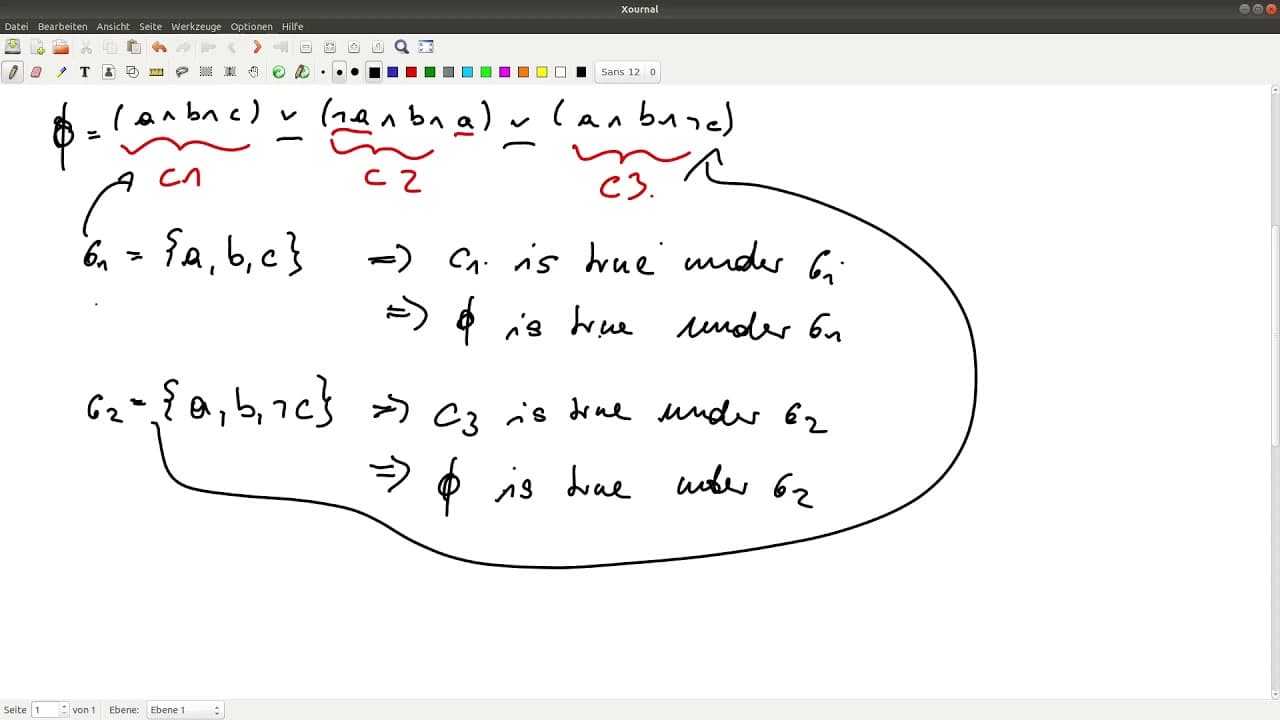 Xournal
Datei Bearbeiten Ansicht Seite Werkzeuge Optionen Hilfe
T Sans 12 0
ϕ = (a ∧ b ∧ c) ∨ (¬a ∧ b ∧ a) ∨ (a ∧ b ∧ ¬c)
C1 C2 C3.
σ1 = {a, b, c} => C1. is true under σ1
=> ϕ is true under σ1
σ2 = {a, b, ¬c} => C3 is true under σ2
=> ϕ is true under σ2
Seite 1 von 1 Ebene: Ebene 1